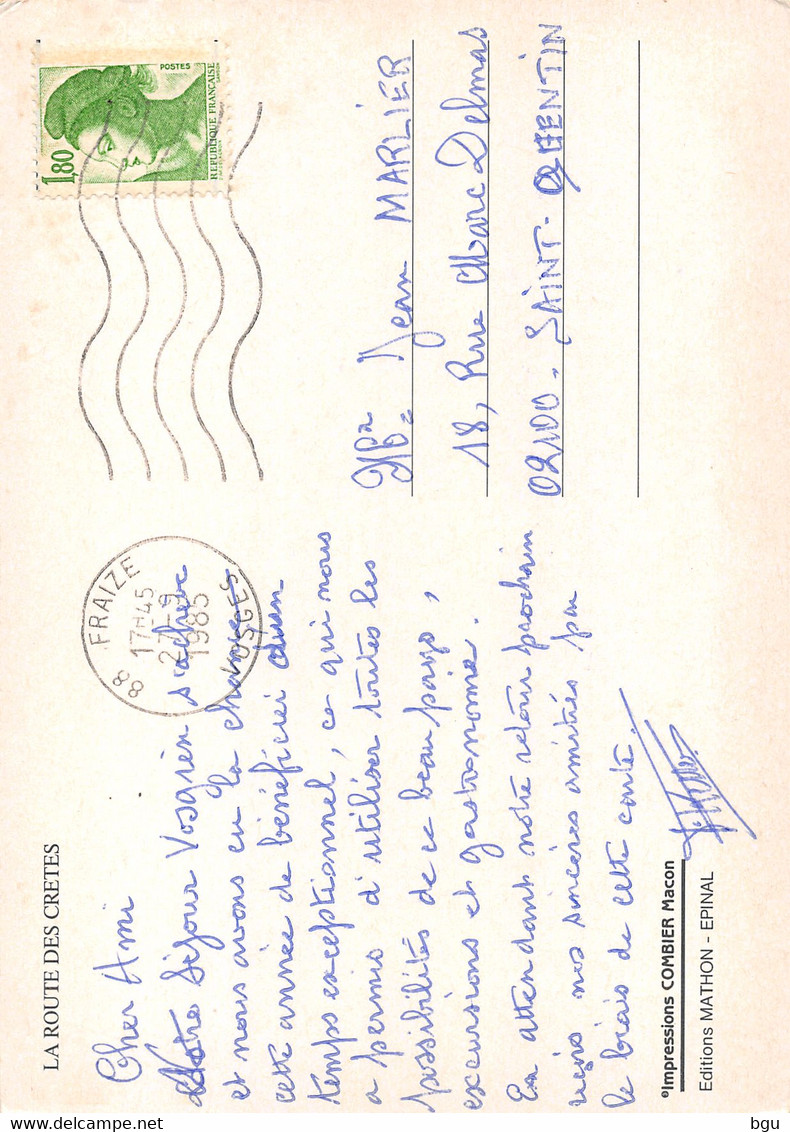 LA ROUTE DES CRETES
Cher Ami
Notre Séjour Vosgien s'achève
et nous avons eu la chance
cette année de bénéficier d'un
temps exceptionnel, ce qui nous
a permis d'utiliser toutes les
possibilités de ce beau pays,
excursions et gastronomie.
En attendant notre retour prochain
reçois nos sincères amitiés par
le biais de cette carte.
©Impressions COMBIER Macon
Editions MATHON - EPINAL
88 FRAIZE
17H45
1985
VOSGES
POSTES
1,80
REPUBLIQUE FRANÇAISE
Jean MARLIER
18, Rue Marc Delmas
02100 - SAINT-QUENTIN
delcampe.net
bgu